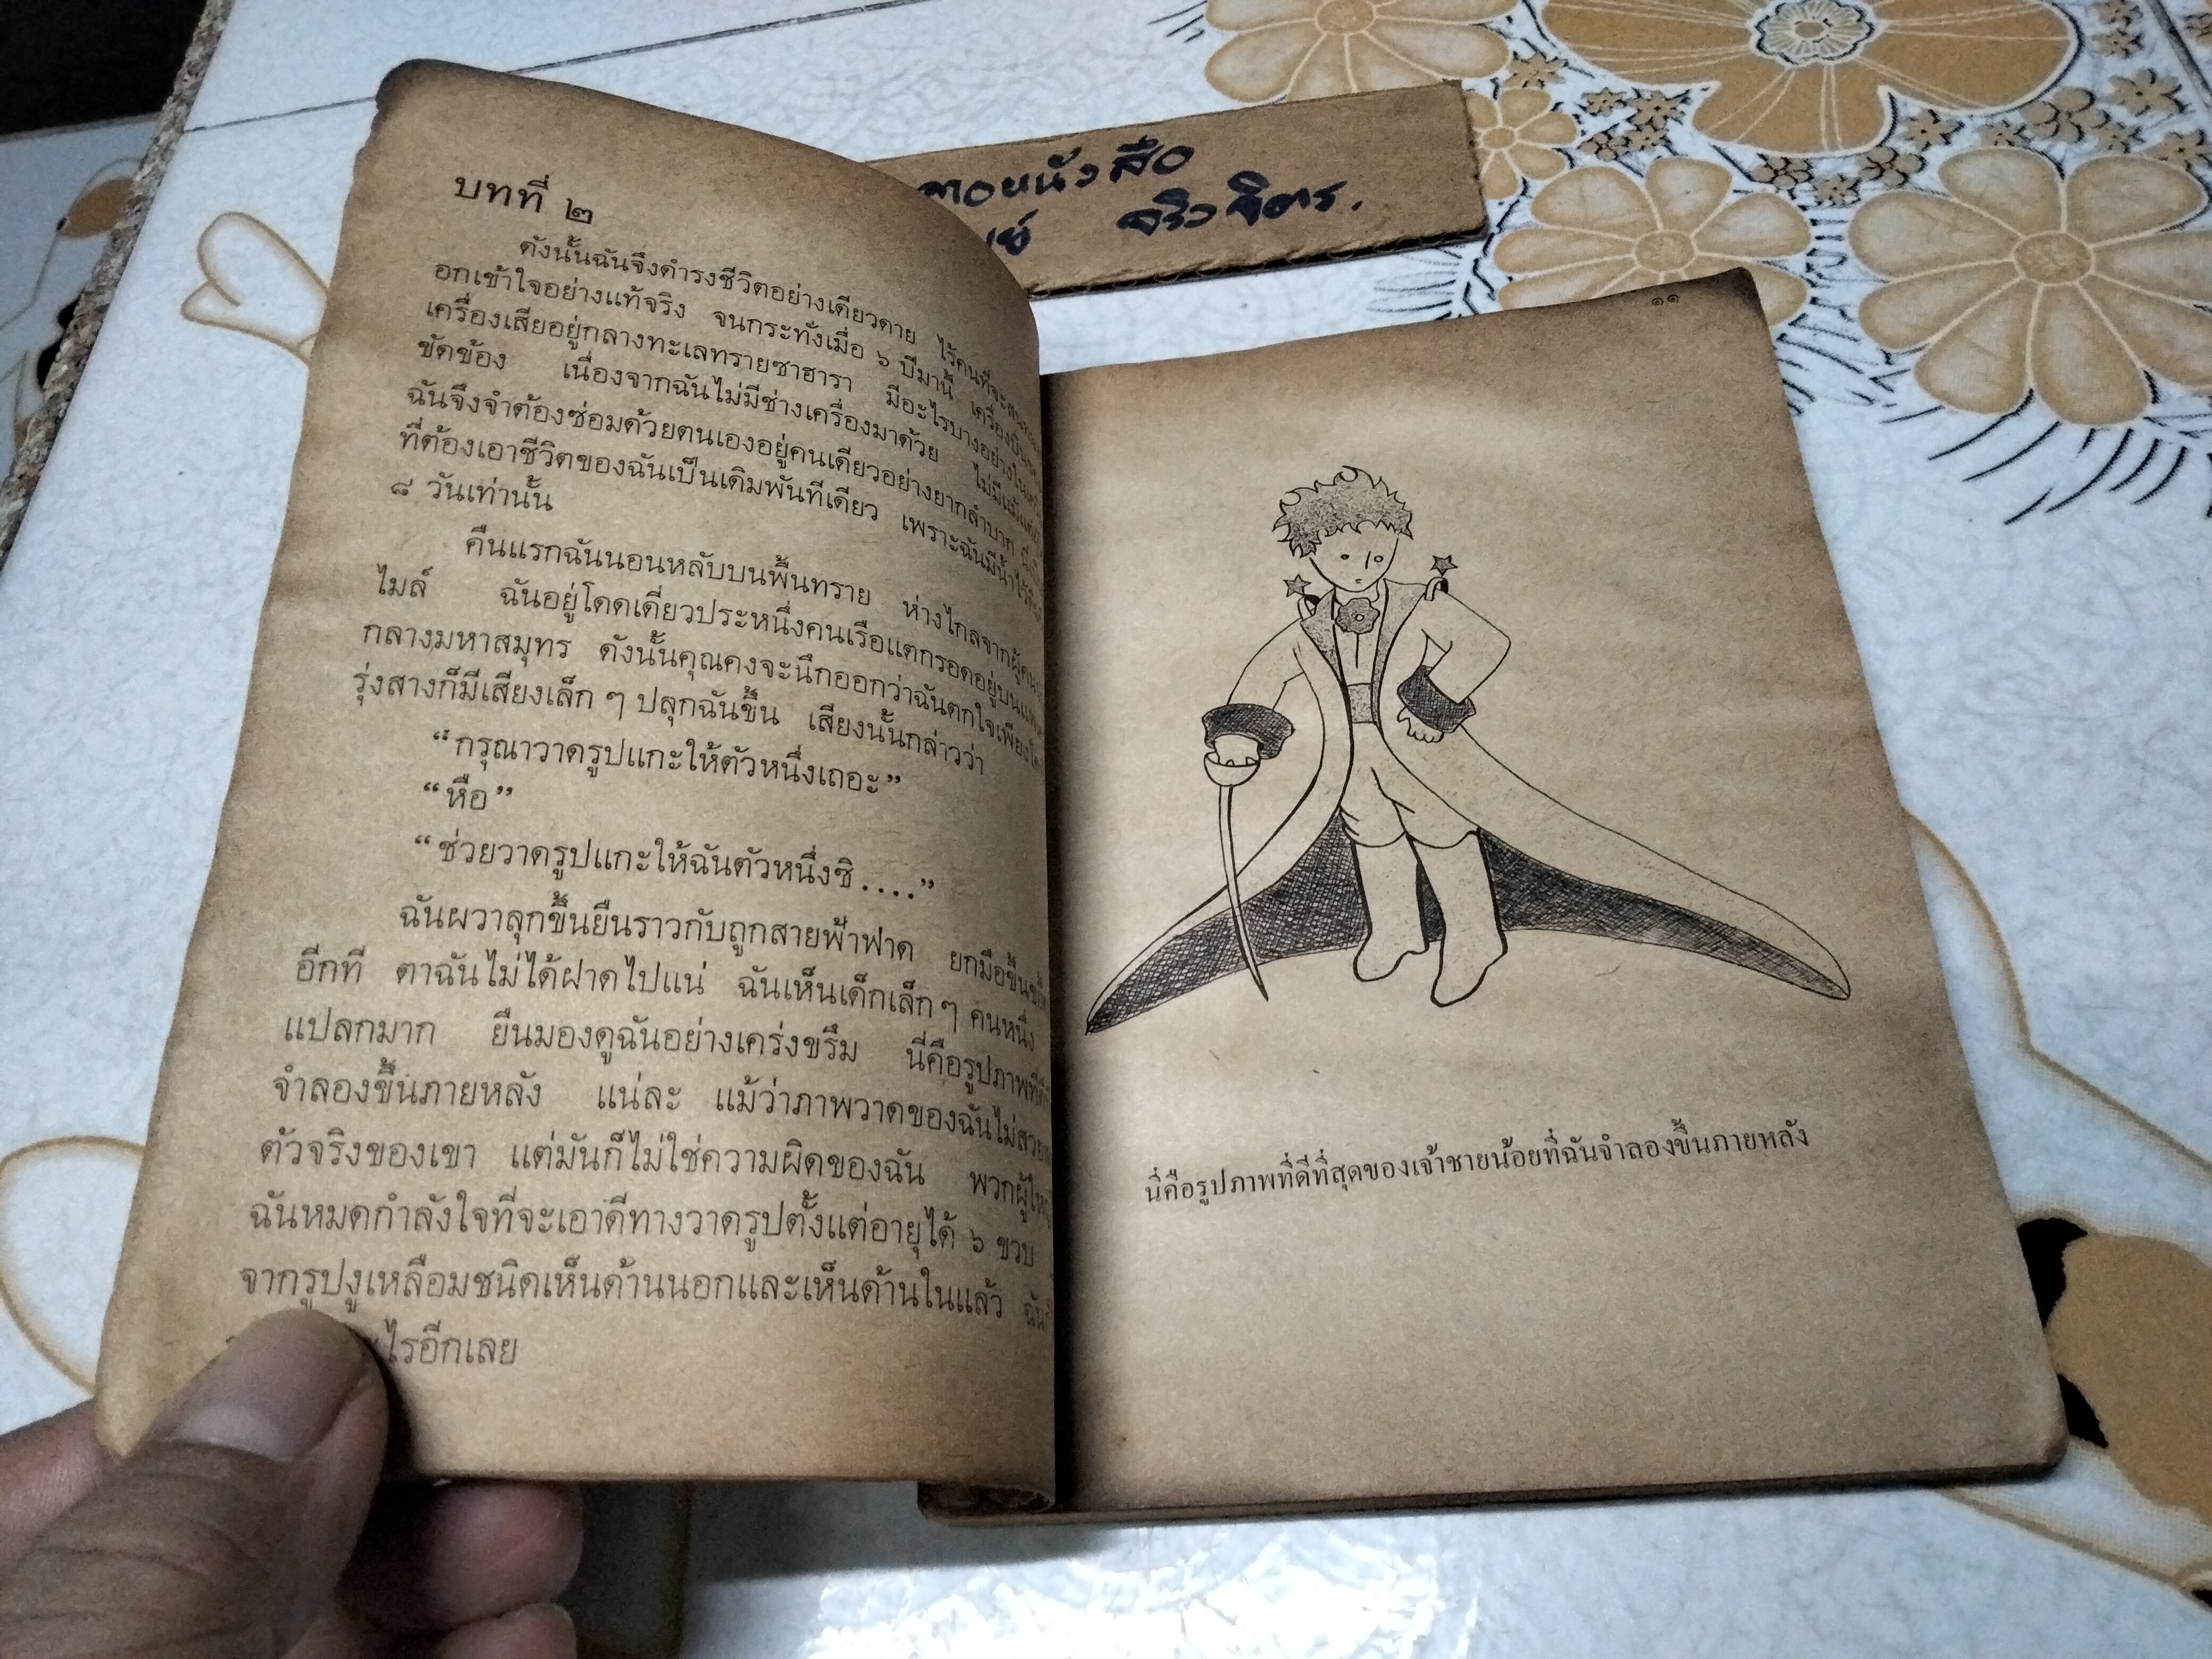 บทที่ ๒
ดังนั้นฉันจึงดำรงชีวิตอย่างเดียวดาย ไร้คนที่จะ
อกเข้าใจอย่างแท้จริง จนกระทั่งเมื่อ ๖ ปีมานี้ เครื่องบิน
เครื่องเสียอยู่กลางทะเลทรายซาฮารา มีอะไรบางอย่างใน
ขัดข้อง เนื่องจากฉันไม่มีช่างเครื่องมาด้วย ไม่มีแม้แต่
ฉันจึงจำต้องซ่อมด้วยตนเองอยู่คนเดียวอย่างยากลำบาก
ที่ต้องเอาชีวิตของฉันเป็นเดิมพันทีเดียว เพราะฉันมีน้ำไว้
๘ วันเท่านั้น
คืนแรกฉันนอนหลับบนพื้นทราย ห่างไกลจากผู้คน
ไมล์ ฉันอยู่โดดเดี่ยวประหนึ่งคนเรือแตกรอดอยู่บน
กลางมหาสมุทร ดังนั้นคุณคงจะนึกออกว่าฉันตกใจเพียง
รุ่งสางก็มีเสียงเล็ก ๆ ปลุกฉันขึ้น เสียงนั้นกล่าวว่า
“กรุณาวาดรูปแกะให้ตัวหนึ่งเถอะ”
“หือ”
“ช่วยวาดรูปแกะให้ฉันตัวหนึ่งซิ....”
ฉันผวาลุกขึ้นยืนราวกับถูกสายฟ้าฟาด ยกมือขึ้น
อีกที ตาฉันไม่ได้ฝาดไปแน่ ฉันเห็นเด็กเล็ก ๆ คนหนึ่ง
แปลกมาก ยืนมองดูฉันอย่างเคร่งขรึม นี่คือรูปภาพที่
จำลองขึ้นภายหลัง แน่ละ แม้ว่าภาพวาดของฉันไม่
ตัวจริงของเขา แต่มันก็ไม่ใช่ความผิดของฉัน พวกผู้ใหญ่
ฉันหมดกำลังใจที่จะเอาดีทางวาดรูปตั้งแต่อายุได้ ๖ ขวบ
จากรูปงูเหลือมชนิดเห็นด้านนอกและเห็นด้านในแล้ว
ไรอีกเลย
จริงจิตร.
๑๑
นี่คือรูปภาพที่ดีที่สุดของเจ้าชายน้อยที่ฉันจำลองขึ้นภายหลัง